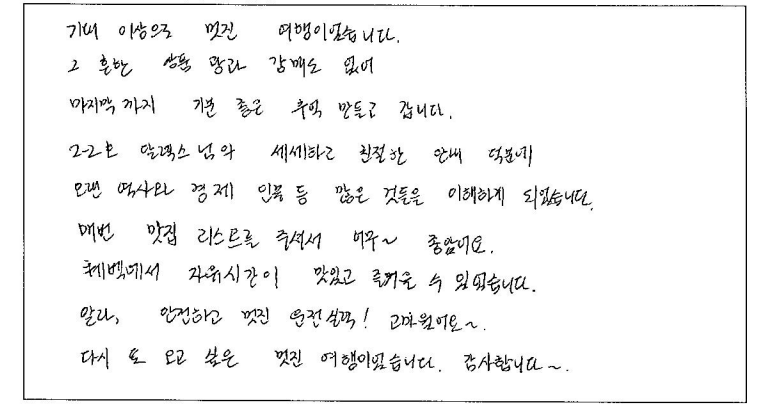 기대 이상으로 멋진 여행이었습니다.
그 흔한 상품 광과 강매도 없어
마지막까지 기분 좋은 추억 만들고 갑니다.
알렉스님의 세세하고 친절한 안내 덕분에
오랜 역사와 경제 인물 등 많은 것들을 이해하게 되었습니다.
매번 맛집 리스트를 주셔서 너무~ 좋았어요.
헤벡에서 자유시간이 맛있고 즐거울 수 있었습니다.
알라, 안전하고 멋진 운전실력! 고마웠어요~.
다시 또 오고 싶은 멋진 여행이었습니다. 감사합니다~.